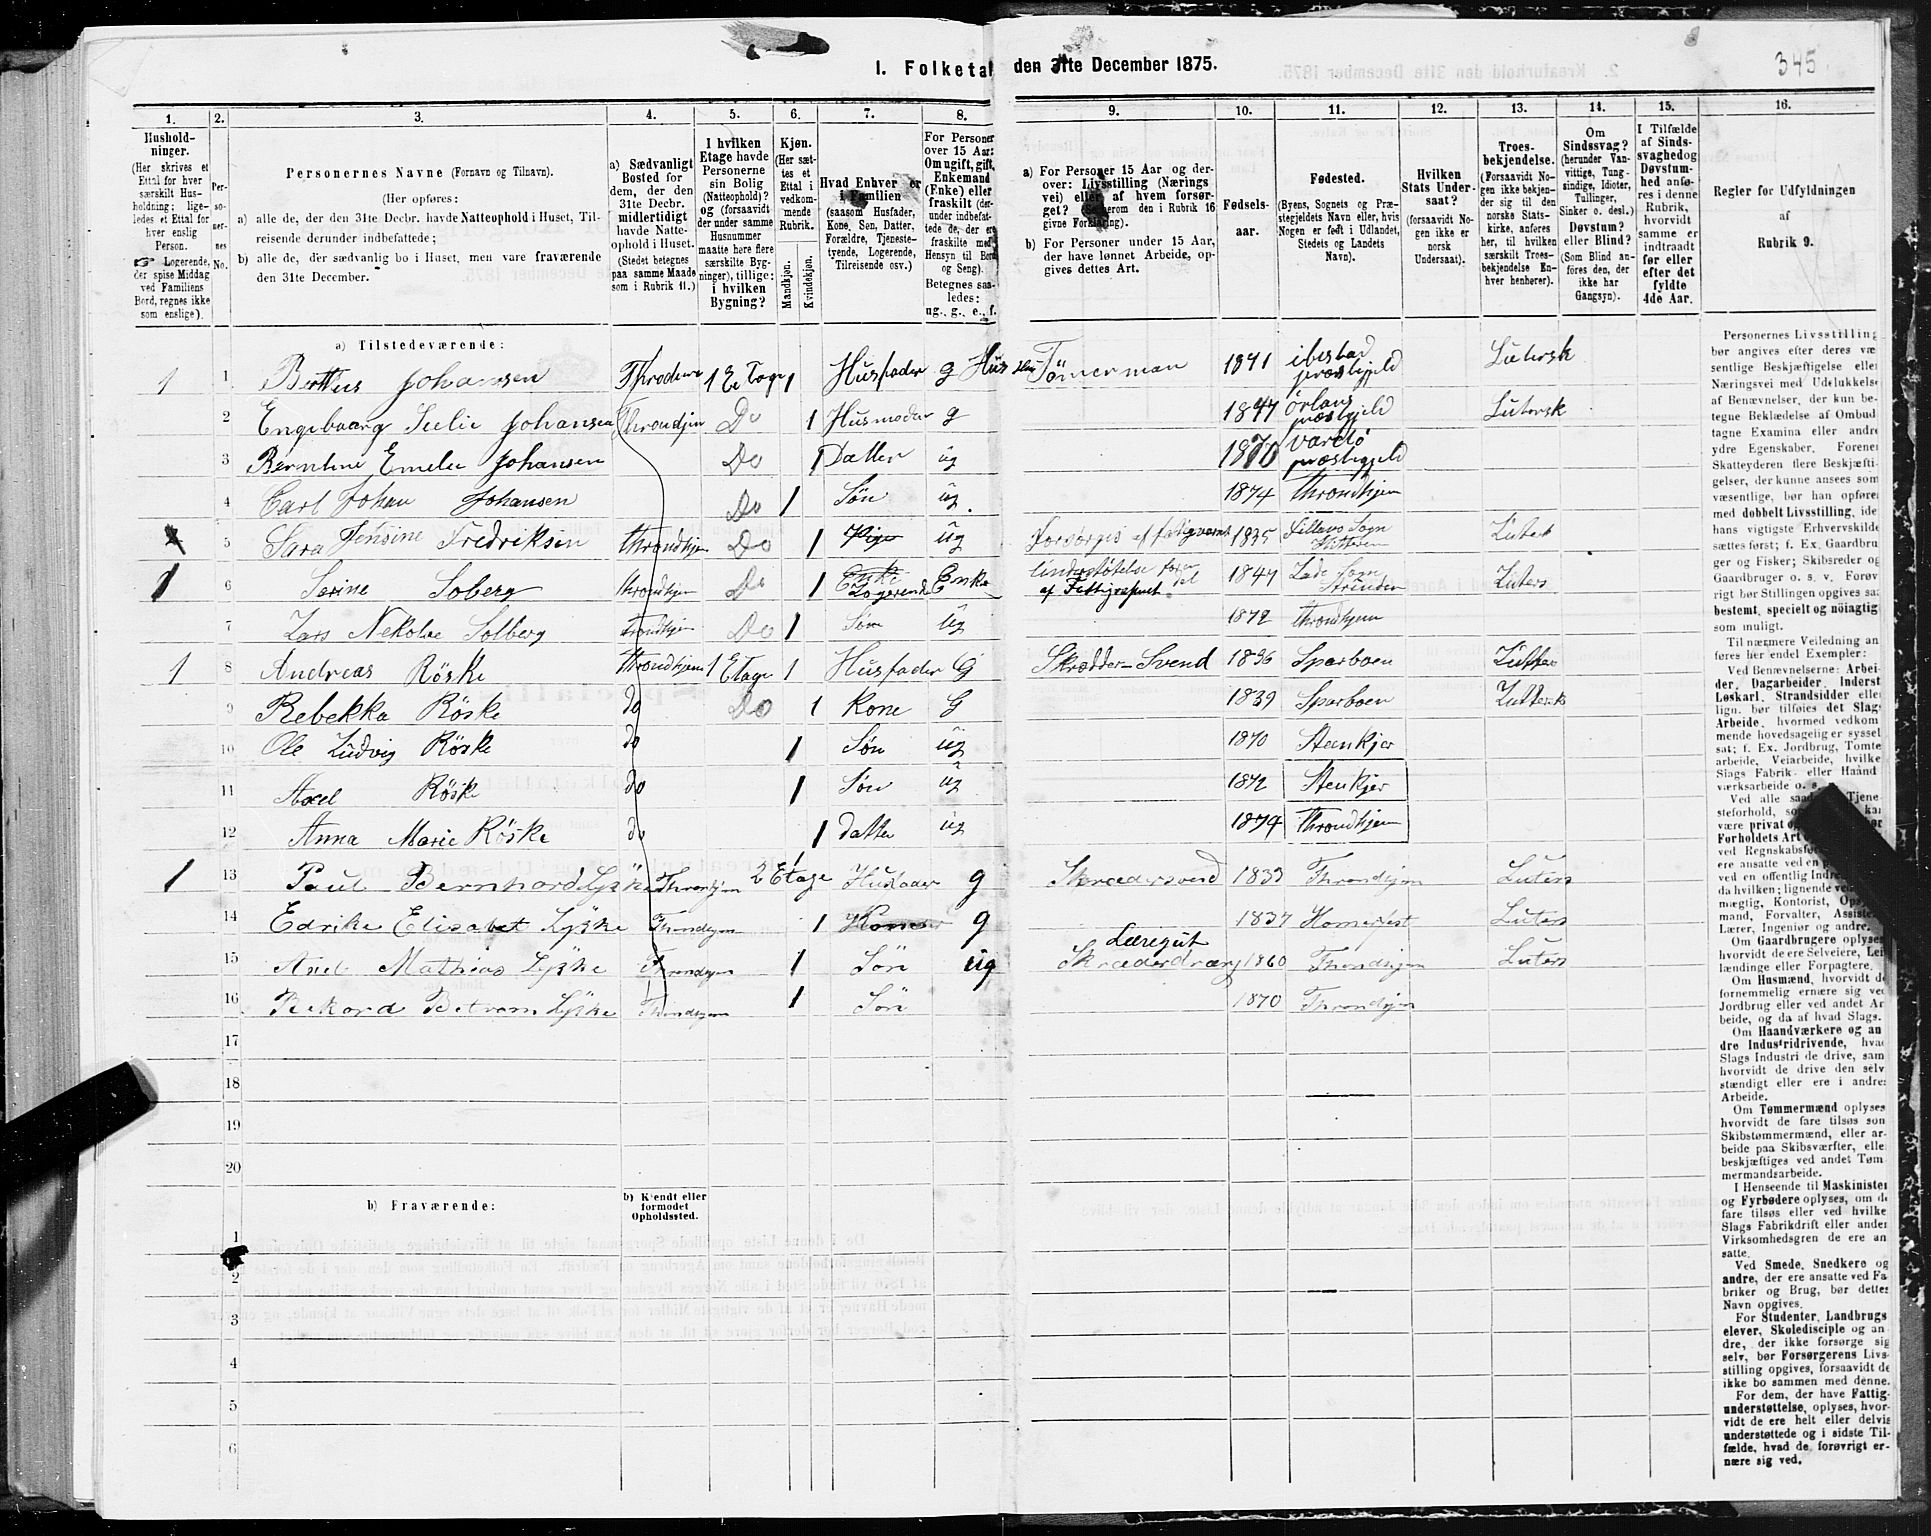 1. Folketal den 31te December 1875.
345
1. 2. 3. 4. 5. 6. 7. 8. 9. 10. 11. 12. 13. 14. 15. 16.
Hushold-
ninger.
(Her skrives et
Ettal for hver
særskilt Hus-
holdning; lige-
ledes et Ettal for
hver enslig
Person.
☞ Logerende,
der spise Middag
ved Familiens
Bord, regnes ikke
som enslige).
Per-
so-
ner-
nes
No.
Personernes Navne (Fornavn og Tilnavn).
(Her opføres:
a) alle de, der den 31te Decbr. havde Natteophold i Huset, Til-
reisende derunder indbefattede;
b) alle de, der sædvanlig bo i Huset, men vare fraværende
den 31te December.
a) Sædvanligt
Bosted for
dem, der den
31te Decbr.
midlertidigt
havde Natte-
ophold i Huset.
(Stedet betegnes
paa samme Maade
som i Rubrik 11.)
I hvilken
Etage havde
Personerne
sin Bolig
(Natteophold)?
og (forsaavidt
der under samme
Husnummer
maatte være flere
særskilte Byg-
ninger), tillige:
i hvilken
Bygning?
Kjøn.
(Her sæt-
tes et
Ettal i
vedkom-
mende
Rubrik.
Mandkjøn.
Kvindekjøn.
Hvad Enhver er
i Familien
(saasom Husfader,
Kone, Søn, Datter,
Forældre, Tjeneste-
tyende, Logerende,
Tilreisende osv.)
For Personer
over 15 Aar:
Om ugift, gift,
Enkemand
(Enke) eller
fraskilt (der-
under indbefat-
tede de, der ere
fraskilte med
Hensyn til Bord
og Seng).
Betegnes saa-
ledes:
ug., g., e., f.
a) For Personer 15 Aar og der-
over: Livsstilling (Nærings-
vei) eller af hvem forsør-
get? (Se herom den i Rubrik 16
givne Forklaring).
b) For Personer under 15 Aar,
der have lønnet Arbeide, op-
gives dettes Art.
Fødsels-
aar.
Fødested.
(Byens, Sognets og Præ-
stegjeldets Navn eller, hvis
Nogen er født i Udlandet,
Stedets og Landets
Navn).
Hvilken
Stats Under-
saat?
(forsaavidt No-
gen ikke er
norsk
Undersaat).
Troes-
bekjendelse.
(Forsaavidt No-
gen ikke bekjen-
der sig til den
norske Stats-
kirke, anføres
her, til hvilken
særskilt Troes-
bekjendelse En-
hver henhører).
Om
Sindssvag?
(herunder Van-
vittige, Tung-
sindige, Idioter,
Tullinger,
Sinker o. desl.)
Døvstum?
eller Blind?
(Som Blind an-
føres den, der
ikke har
Gangsyn).
I Tilfælde
af Sinds-
svaghed og
Døvstum-
hed anfø-
res i denne
Rubrik,
hvorvidt
samme er
indtraadt
før eller
efter det
fyldte
4de Aar.
Regler for Udfyldningen
af
Rubrik 9.
a) Tilstedeværende:
1 1 Bertius Johansen 1 Etage 1 Husfader g Tömerman 1841 ibestad præstigjeld Lutersk
2 Engebaarg Julie Johansen Throndjem Do 1 Husmoder g 1847 örlans præstigjeld Lutersk
3 Berntine Emelie Johansen Do 1 Datter ug 1870 Vardø præstigjeld
4 Carl Johan Johansen Do 1 Søn üg. 1874 throndhjem
5 Sara Jensine Fredriksen throndhjem Do 1 Pige üg Forsörges af fatigvæsnet 1835 Lutersk
1 6 Serine Soberg throndhjem Do 1 Enke Logerende Enke af Fattigvæsnet 1847 Lade Sogn Strinden Luters
7 Lars Nekolae Solberg Trondhjem Do 1 Søn üg 1872 throndhjem
1 8 Andreas Röske throndhjem 1 Etage 1 Husfader G Skrædder-Svend 1836 Sparboen Lutters
9 Rebekka Röske do Do 1 Kone G 1839 Sparboen Luttersk
10 Ole Ludvig Röske do 1 Søn üg 1870 Steenkjer
11 Axel Röske do 1 Søn üg 1872 Stenkjer
12 Anna Marie Röske do 1 datter üg 1874 throndhjem
1 13 Paul Bernhard Lyske Thronhjem 2 Etage 1 Husfader g Skrædersvend 1833 Throndhjem Luters
14 Edrike Elisabet Lyske Throndhjem 1 Kone g 1837 Hamerfest Luters
15 Axel Mathias Lyske Throndhjem 1 Sön üg Læregut Skræderdræng 1860 Throndhjem Luters
16 Rekard Betram Lyske Throndhjem 1 Sön 1870 Throndhjem
17
18
19
20
b) Fraværende:
b) Kjendt eller
formodet
Opholdssted.
1
2
3
4
5
6
Personernes Livsstilling
bør angives efter deres væ
sentlige Beskjæftigelse eller
Næringsvei med Udelukkelse
af Benævnelser, der kun be-
tegne Beklædelse af Ombud
tagne Examina eller andre
ydre Egenskaber. Forener
Skatteyderen flere Beskjæfti-
gelser, der kunne ansees som
væsentlige, bør han opføres
med dobbelt Livsstilling, ide
hans vigtigste Erhvervskilde
sættes først; f. Ex. Gaardbru
ger og Fisker; Skibsreder og
Gaardbruger o. s. v. Forøv
rigt bør Stillingen opgives saa
bestemt, specielt og nöiagtig
som muligt.
Til nærmere Veiledning an
føres her endel Exempler:
Ved Benævnelserne: Arbei-
der, Dagarbeider, Inderst
Løskarl, Strandsidder eller
lign. bør tilføies det Slags
Arbeide, hvormed vedkom
mende hovedsagelig er syssel
sat; f. Ex. Jordbrug, Tomte
arbeide, Veiarbeide, hvilke
Slags Fabrik- eller Haand
værksarbeide o. s.
Ved alle saad Tjene-
steforhold, kan
være privat
Forholdets Art
ved Regnskabsfø
ere ansatte ved en
ved en offentlig Indre
da hvilken; lignende ved
mægtig, Kontorist, Opsy
mand, Forvalter, Assistent
Lærer, Ingeniør og andre.
Om Gaardbrugere oplyses
hvorvidt de ere Selveiere, Lei
lændinge eller Forpagtere.
Om Husmænd, hvorvidt de
fornemmelig ernære sig ved
Jordbrug eller ved andet Ar
beide, og da af hvad Slags.
Om Haandværkere og an
dre Industridrivende, hvad
Slags Industri de drive, samt
hvorvidt de drive den selv
stændigt eller ere i andres
Arbeide.
Om Tømmermænd oplyses
hvorvidt de fare tilsøs som
Skibstømmermænd, eller ar-
beide paa Skibsværfter, eller
beskjæftiges ved andet Tøm
mermandsarbeide.
I Henseende til Maskinister
og Fyrbødere oplyses, om de
fare tilsøs eller ved hvilke
Slags Fabrikdrift eller anden
Virksomhedsgren de ere an
satte.
Ved Smede, Snedkere og
andre, der ere ansatte ved Fa
briker og Brug, bør dettes
Navn opgives.
For Studenter, Landbrugs
elever, Skoledisciple og an
dre, der ikke forsørge sig
selv, bør Forsørgerens Livs
stilling opgives, forsaavidt de
ikke bo sammen med denne.
For dem, der have Fattig-
understøttelse, oplyses, hvor-
vidt de ere helt eller delvis
understøttede og i sidste Til-
fælde, hvad de forøvrigt er-
nære sig ved.